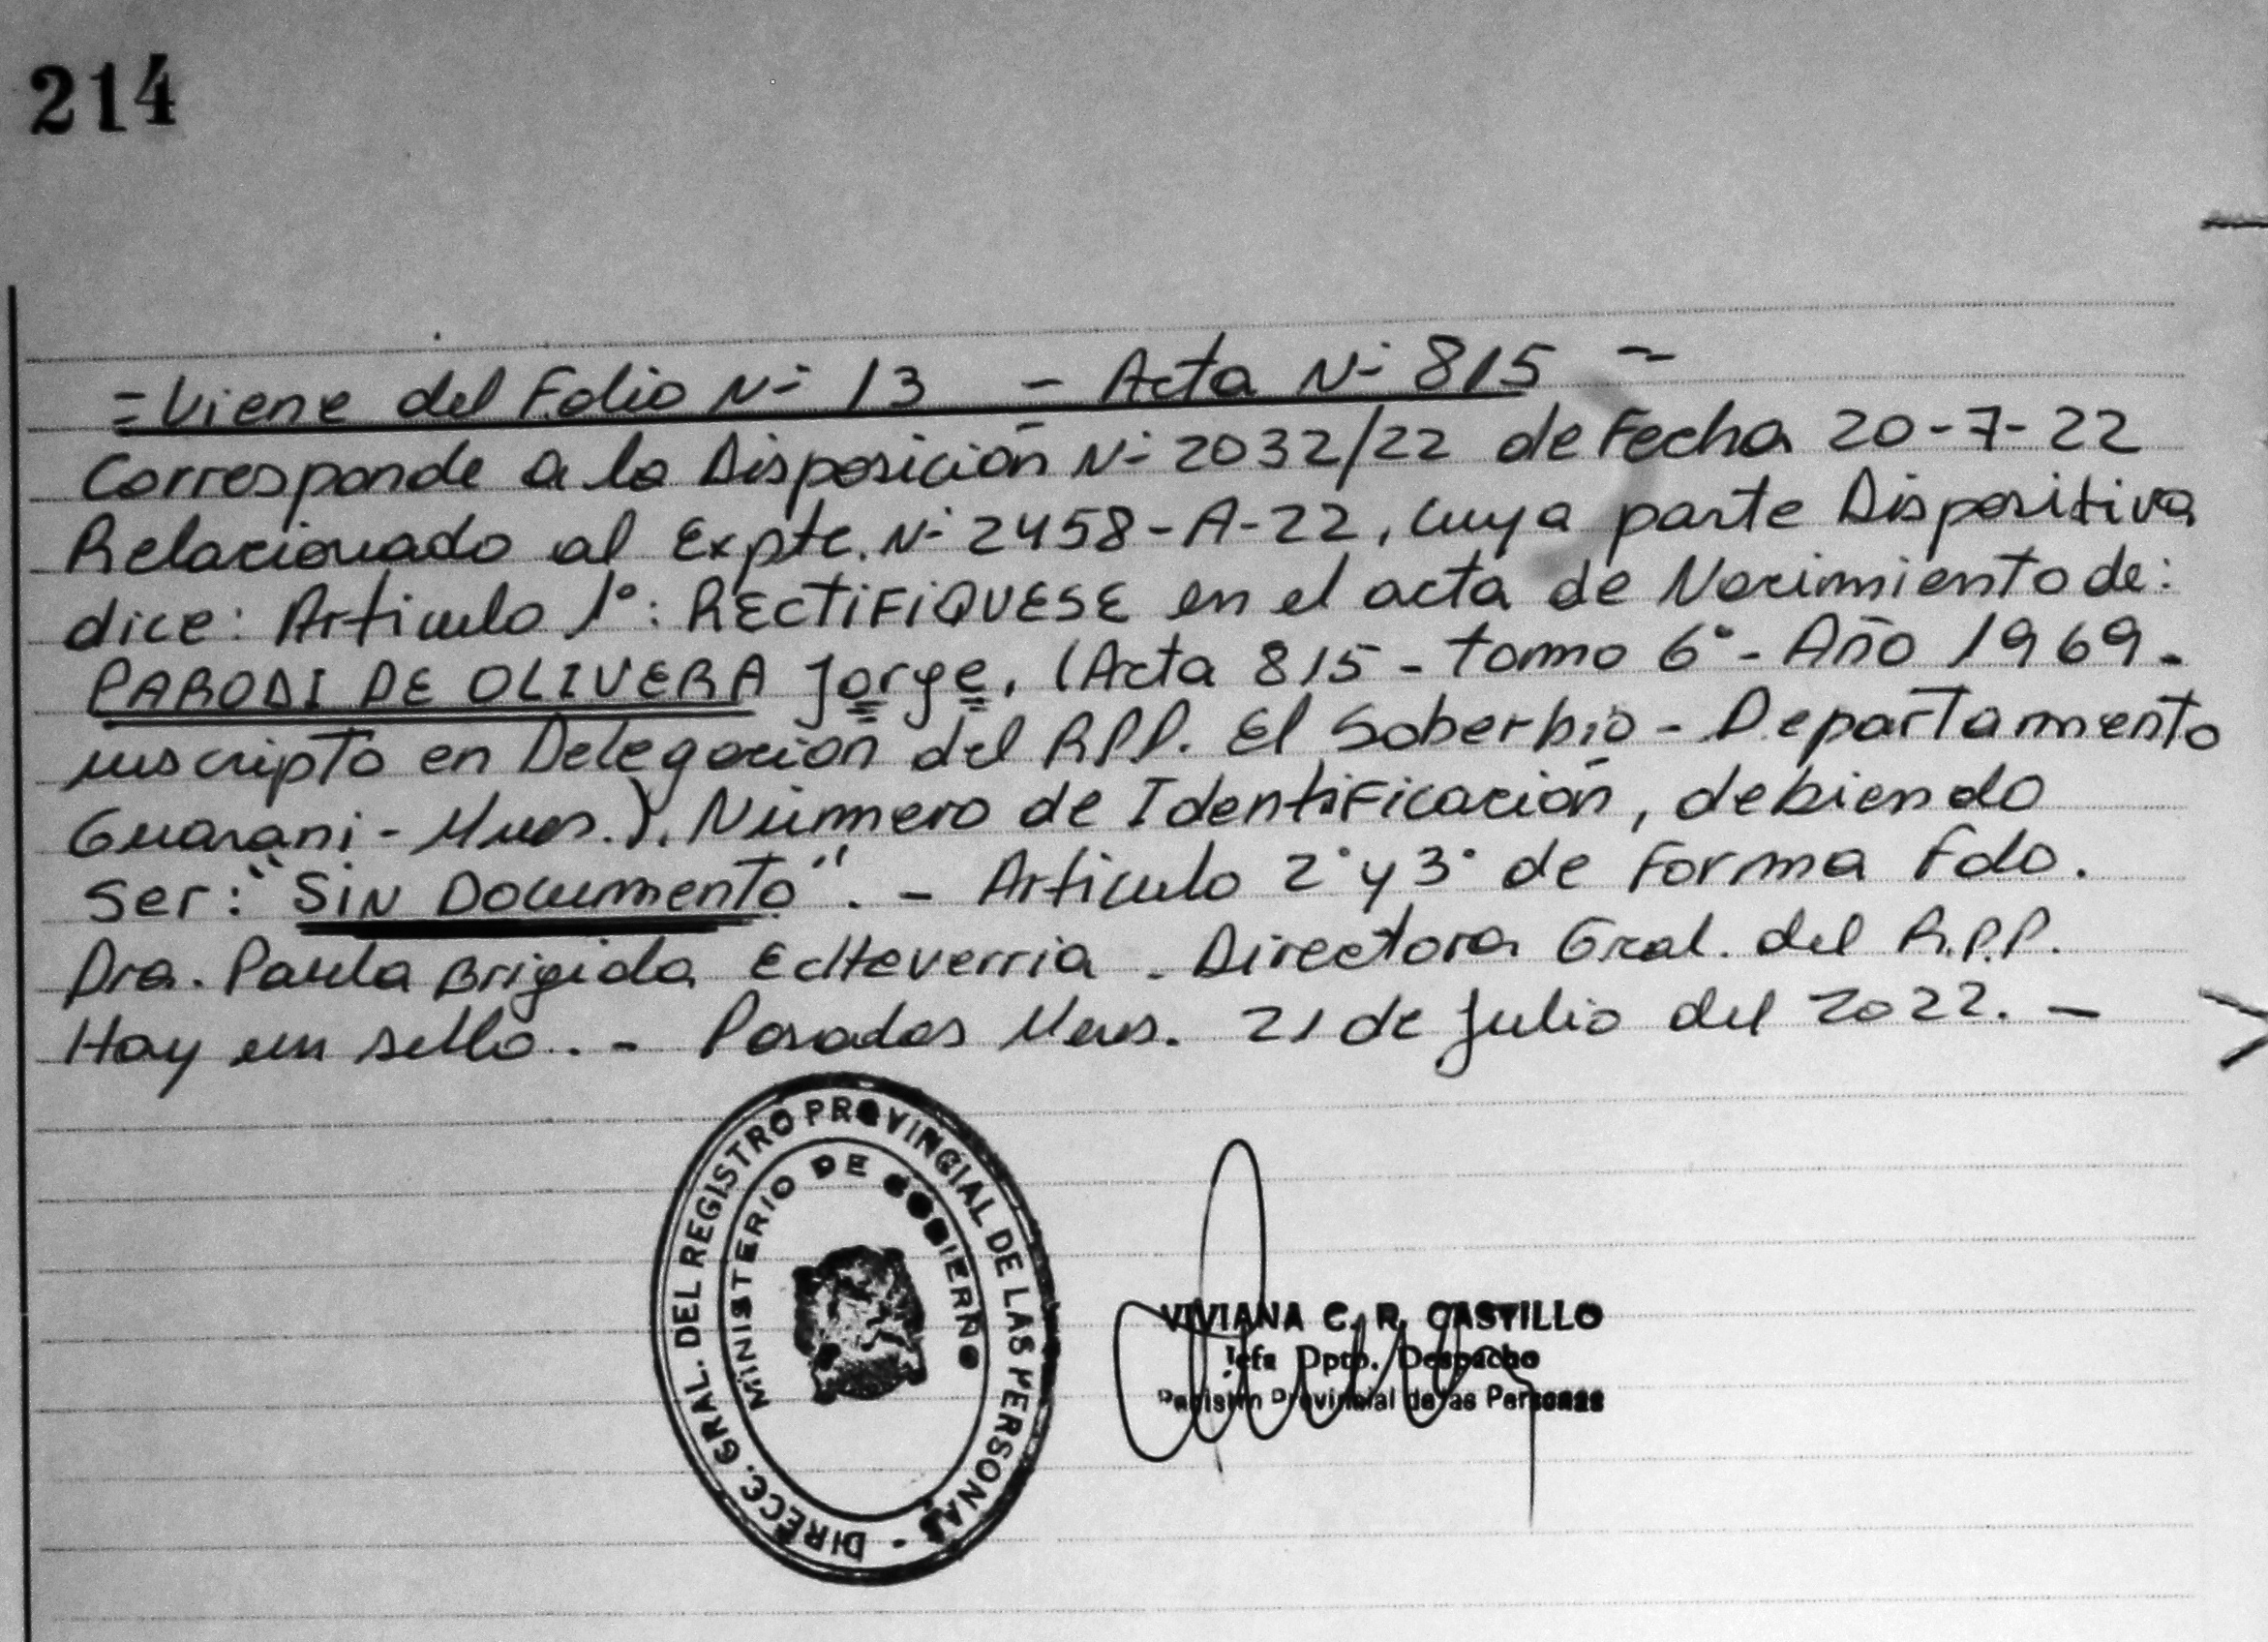 214
=Viene del Folio Nº 13 - Acta Nº 815 -
Corresponde a la Disposición Nº 2032/22 de Fecha 20-7-22
Relacionado al Expte. Nº 2458-A-22, cuya parte Dispositiva
dice: Articulo 1°: RECTIFIQUESE en el acta de Nacimiento de:
PARODI DE OLIVERA Jorge, (Acta 815 - tomo 6° - Año 1969 -
inscripto en Delegación del RPP. El Soberbio - Departamento
Guarani - Mnes.). Número de Identificación, debiendo
Ser: "SIN Documento". - Articulo 2° y 3° de Forma Fdo.
Dra. Paula Brigida Echeverria - Directora Gral. del R.P.P.
Hay un sello. - Posadas Mnes. 21 de Julio del 2022. -
DIRECC. GRAL. DEL REGISTRO PROVINCIAL DE LAS PERSONAS -
MINISTERIO DE GOBIERNO
VIVIANA C. R. CASTILLO
Jefa Dpto. Despacho
Provincial de las Personas